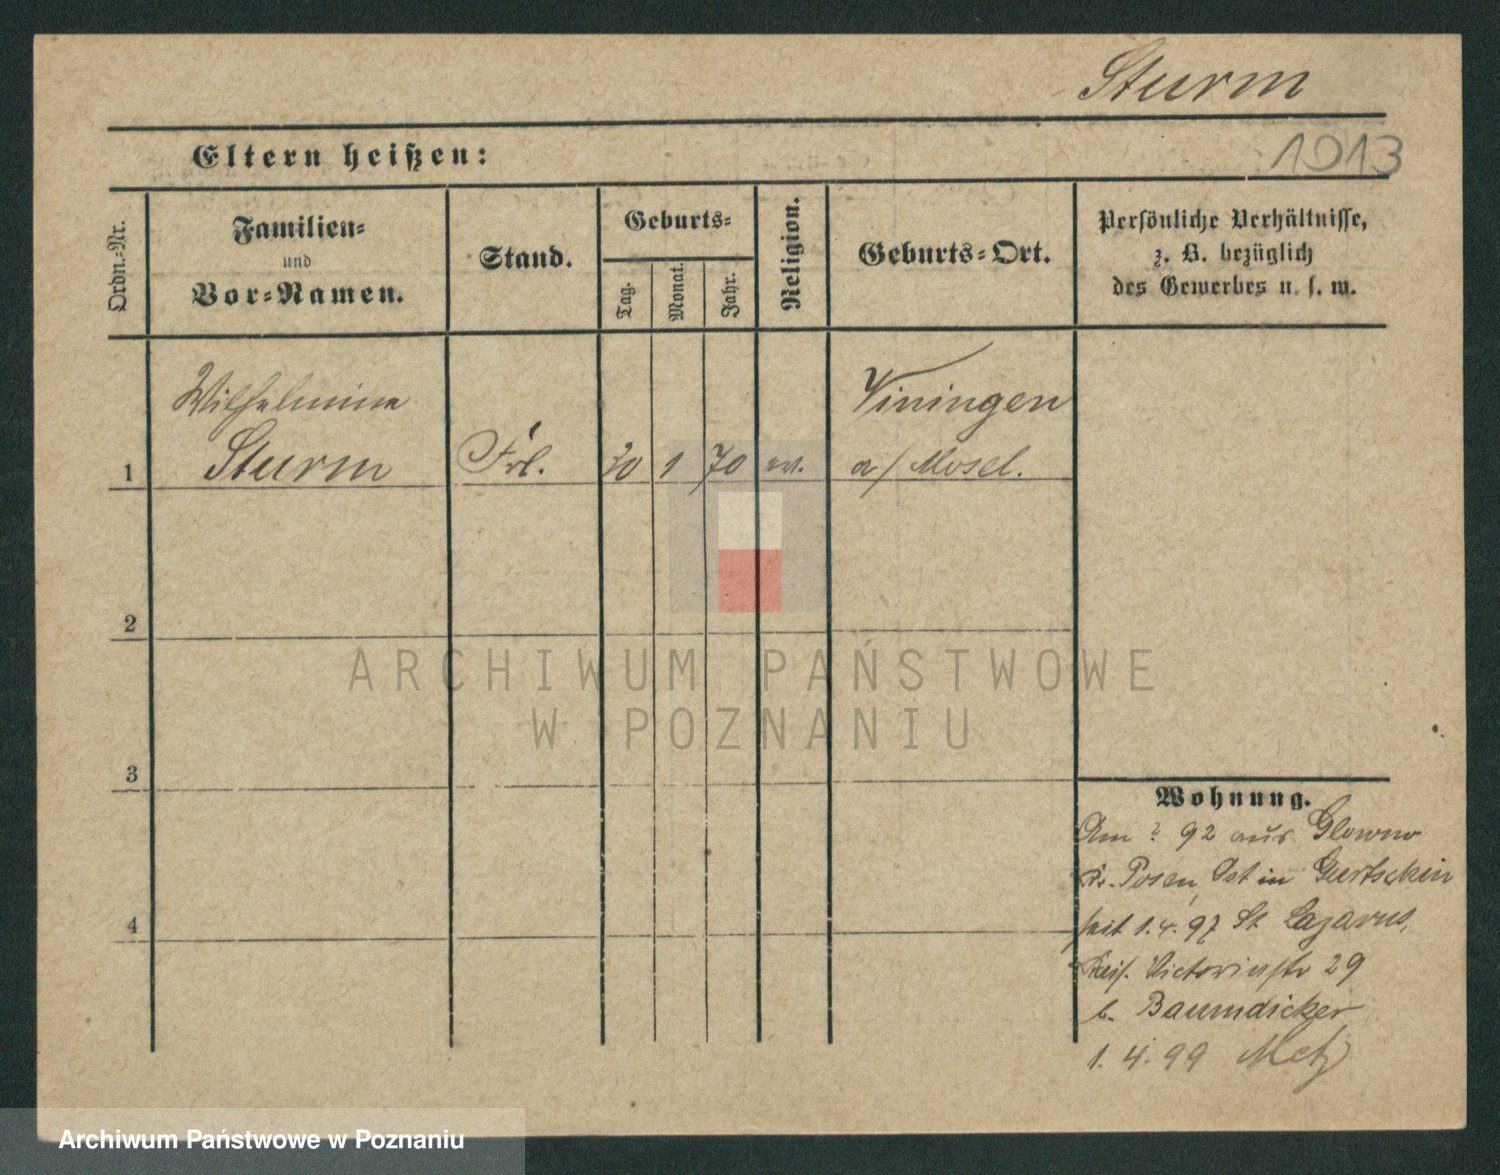 Sturm
Eltern heißen:
1913
Ordn.-Nr.
Familien-
und
Vor-Namen.
Stand.
Geburts-
Tag.
Monat.
Jahr.
Religion.
Geburts-Ort.
Persönliche Verhältnisse,
z. B. bezüglich
des Gewerbes u. s. w.
Wilhelmine
Viningen
1 Sturm Frl. 30 1 70 ev. a/ Mosel.
2
ARCHIWUM PAŃSTWOWE
W POZNANIU
3
Wohnung.
Am ? 92 aus Glowno
Kr. Posen Ost in Gurtschin
4
seit 1.4.97 St Lazarus,
Victoriastr 29
b. Baumdicker
1.4.99 Metz
Archiwum Państwowe w Poznaniu